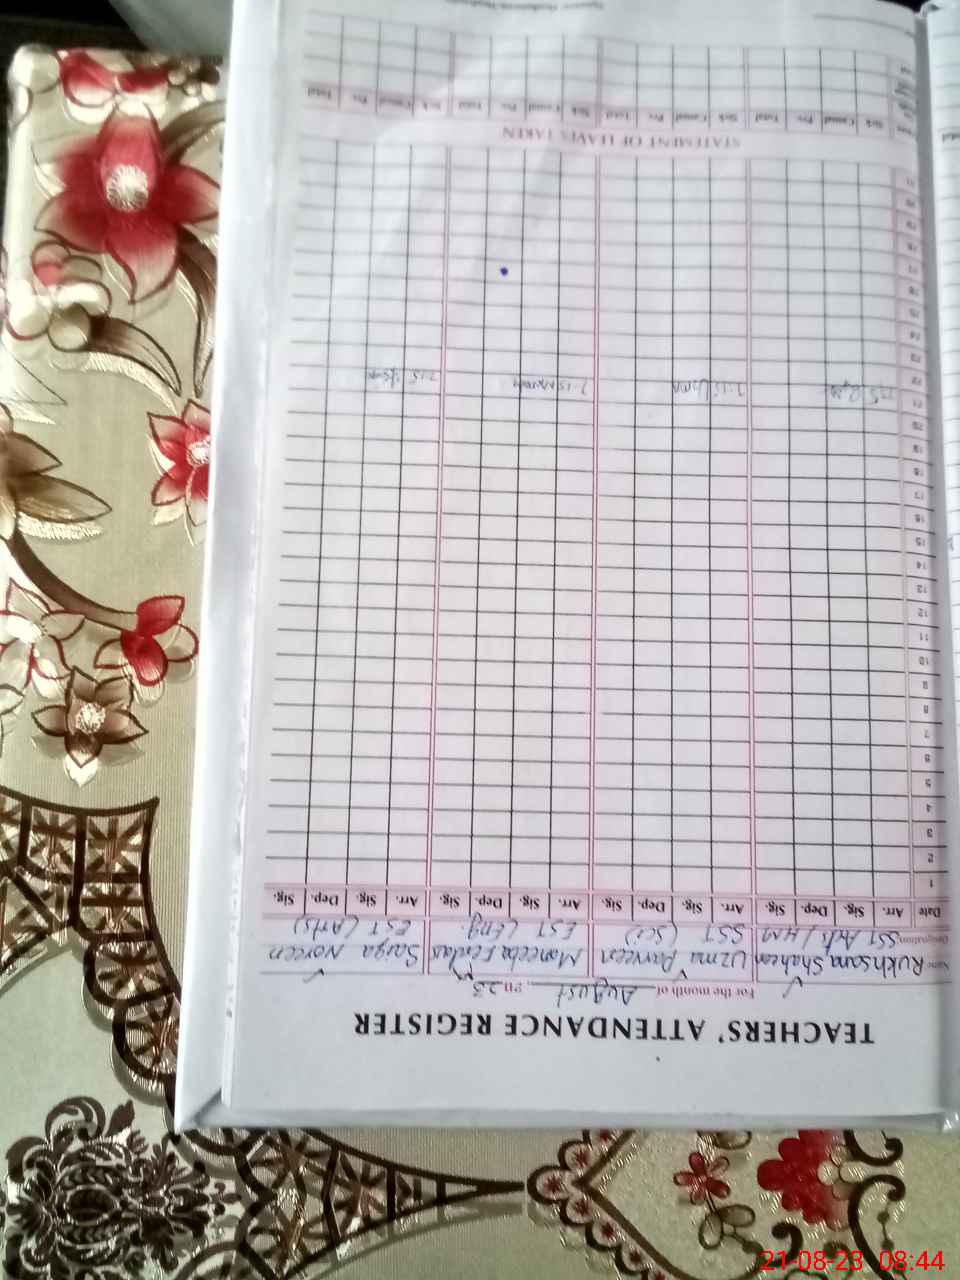 TEACHERS' ATTENDANCE REGISTER
For the month of August 2023
Name Rukhsana Shaheen Uzma Parveen Moneeba Saiqa Noreen
Designation SST Arts/HM SST (Sci) EST (Eng. EST (Arts)
Date Arr. Sig. Dep. Sig. Arr. Sig. Dep. Sig. Arr. Sig. Dep. Sig. Arr. Sig. Dep. Sig.
1
2
3
4
5
6
7
8
9
10
11
12
13
14
15
16
17
18
19
20
21 7:15 Uzma 7:15 7:15
22
23
24
25
26
27
28
29
30
31
STATEMENT OF LEAVES TAKEN
Leaves Sick Casual Prv Total Sick Casual Prv Total Sick Casual Prv Total Sick Casual Prv Total
21-08-23 08:44